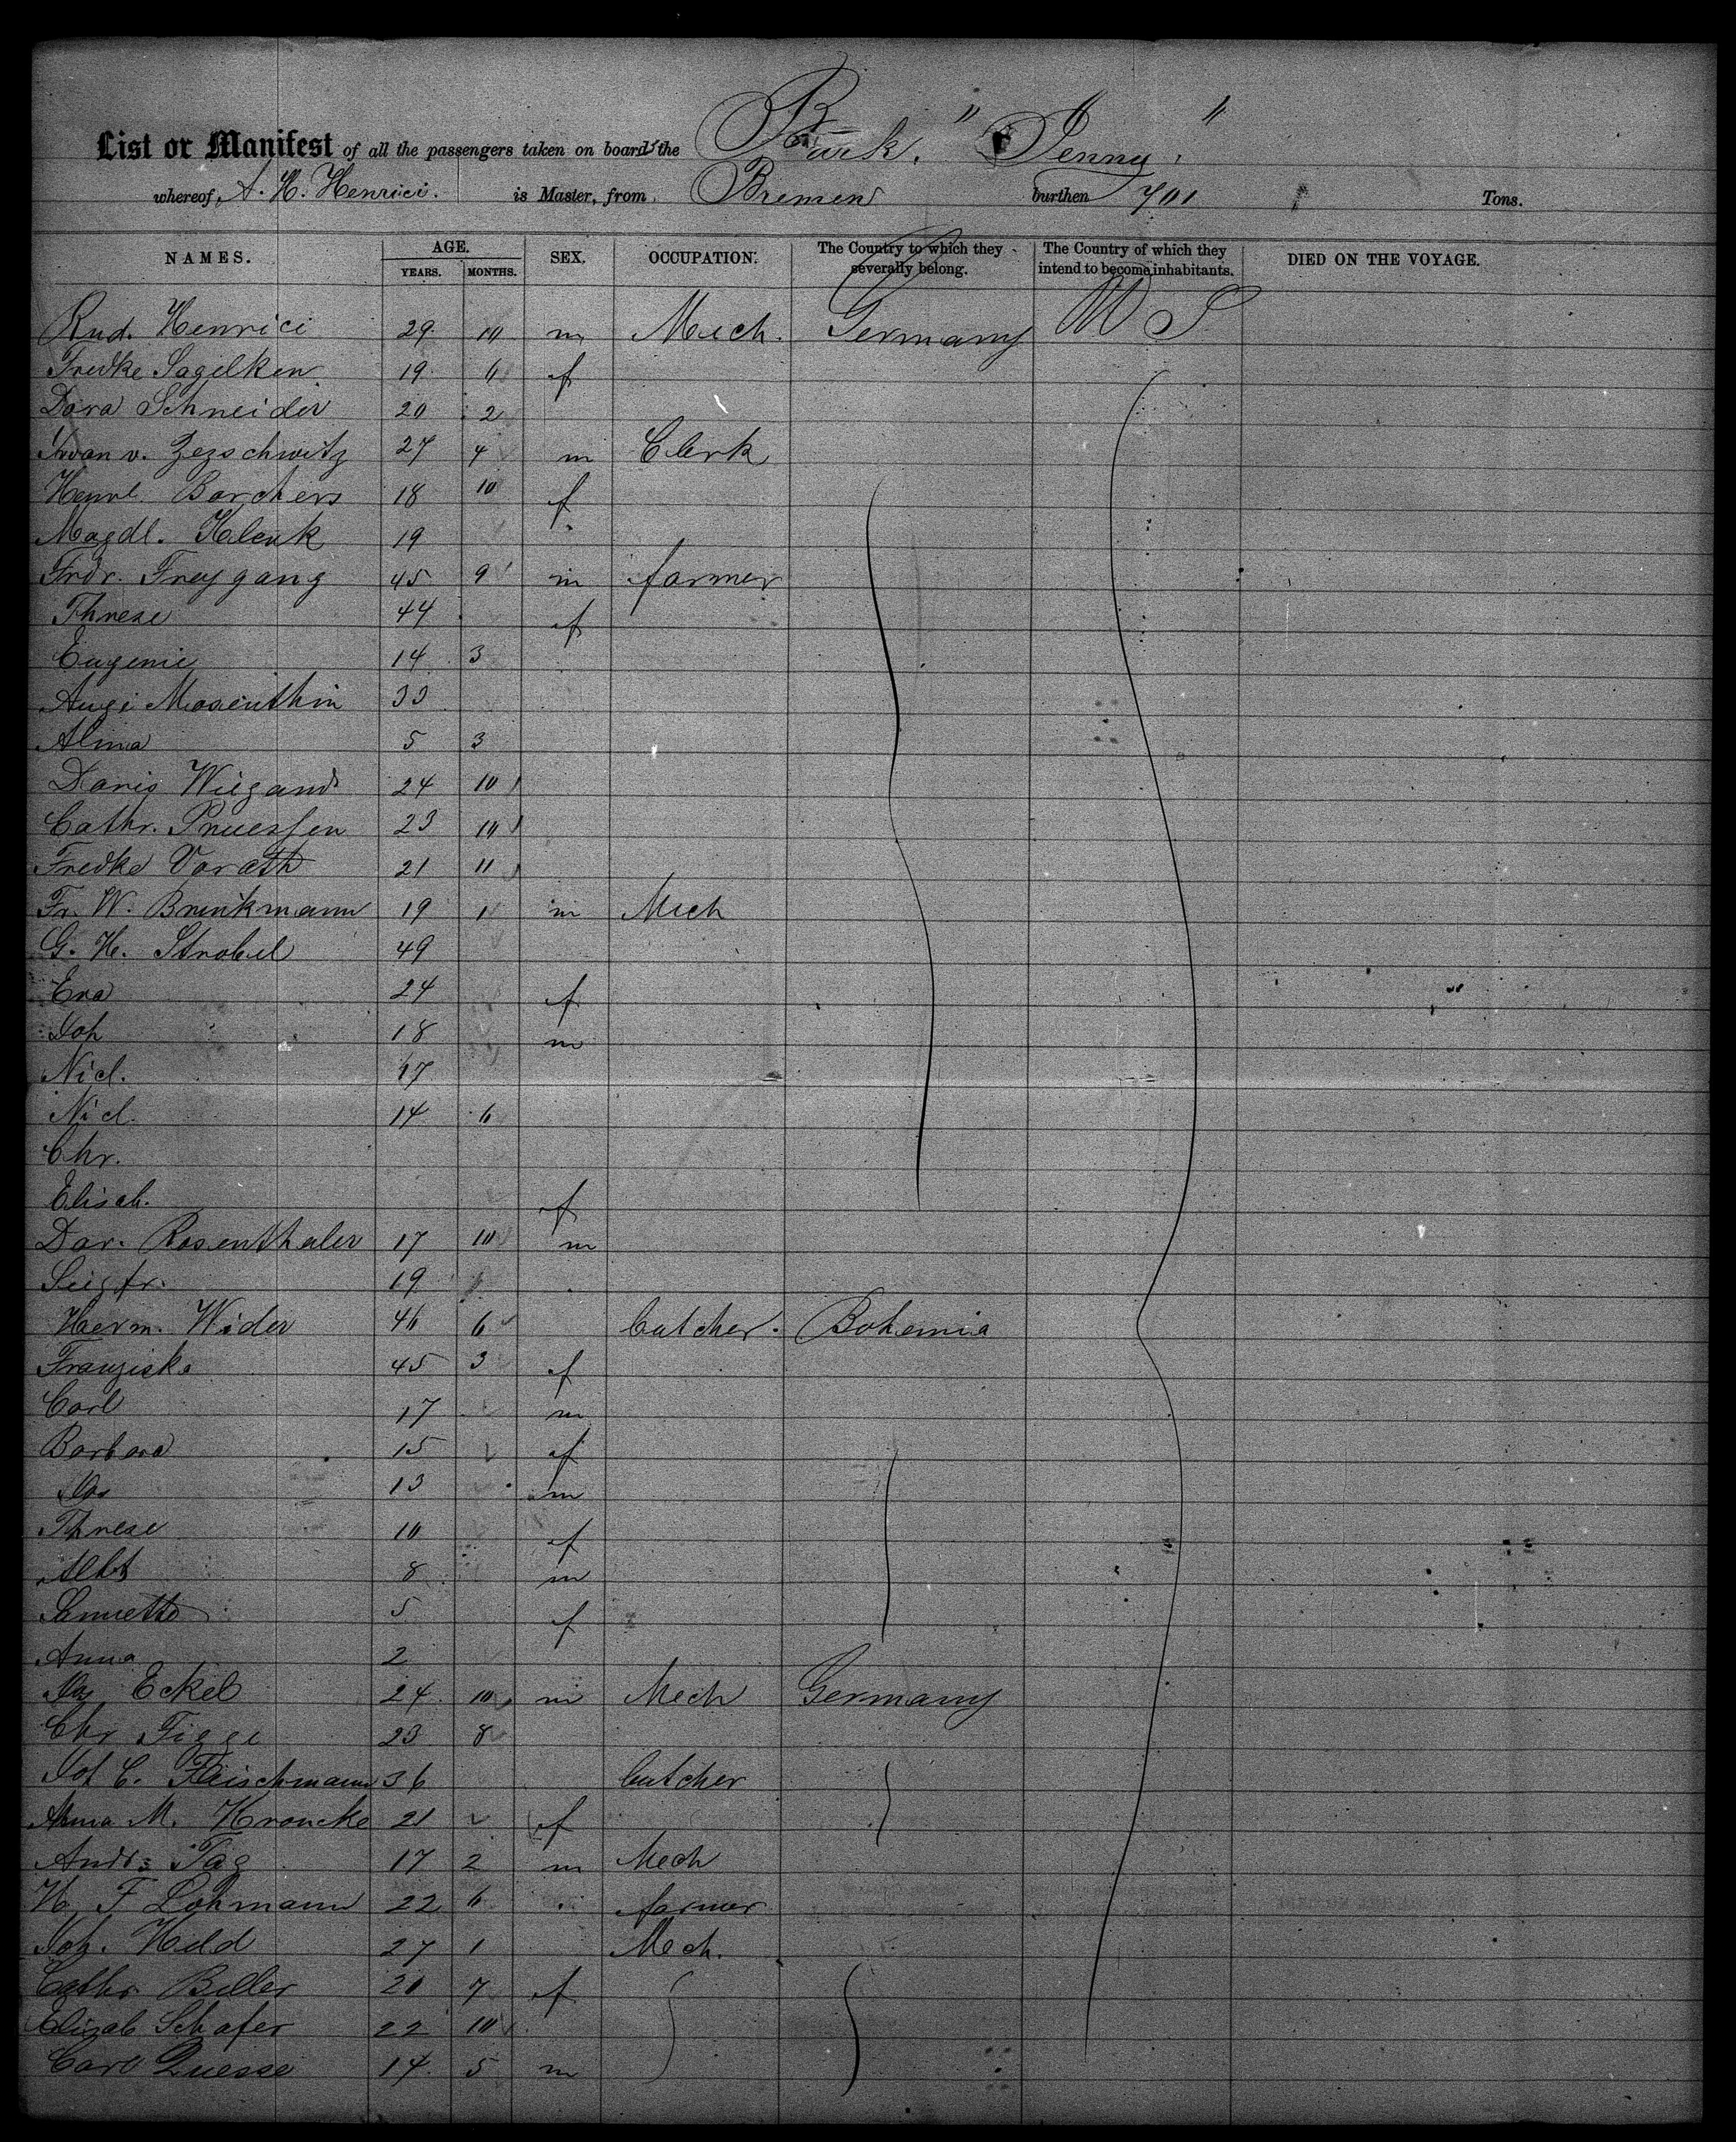 List or Manifest of all the passengers taken on board the Bark. "Jenny"
whereof, A. H. Henrici. is Master, from Bremen burthen 701 Tons.
NAMES. AGE. SEX. OCCUPATION. The Country to which they severally belong. The Country of which they intend to become inhabitants. DIED ON THE VOYAGE.
YEARS. MONTHS.
Rud. Henrici 29 10 m Mech. Germany U S
Fredke Sagelken 19 6 f
Dora Schneider 20 2
Iwan v. Zezschwitz 27 4 m Clerk
Henrl. Borchers 18 10 f
Magdl. Klenk 19
Frdr. Freygang 45 9 m farmer
Threse 44 f
Eugenie 14 3
Aug. Mosenthin 33
Alma 5 3
Doris Wiegand 24 10
Cathr. Pruessen 23 10
Fredke Vorath 21 11
Fr. W. Brinkmann 19 1 m Mech
G. H. Strobel 49
Eva 24 f
Joh 18 m
Nicl. 17
Nicl. 14 6
Chr.
Elisab. f
Dav. Rosenthaler 17 10 m
Siegfr. 19
Herm. Wider 46 6 butcher. Bohemia
Franziska 45 3 f
Carl 17 m
Barbara 15 f
Jos 13 m
Threse 10 f
Albt 8 m
5 f
Anna 2
Jos Eckel 24 10 m Mech Germany
Chr Figge 23 8
Joh C. Fleischmann 36 butcher
Anna M. Kroncke 21 f
Andr. Tag 17 2 m Mech
H. F Lohmann 22 6 farmer
Joh. Held 27 1 Mech.
Cathr Beller 20 7 f
Elizab Schafer 22 10
Carl Quesse 14 5 m